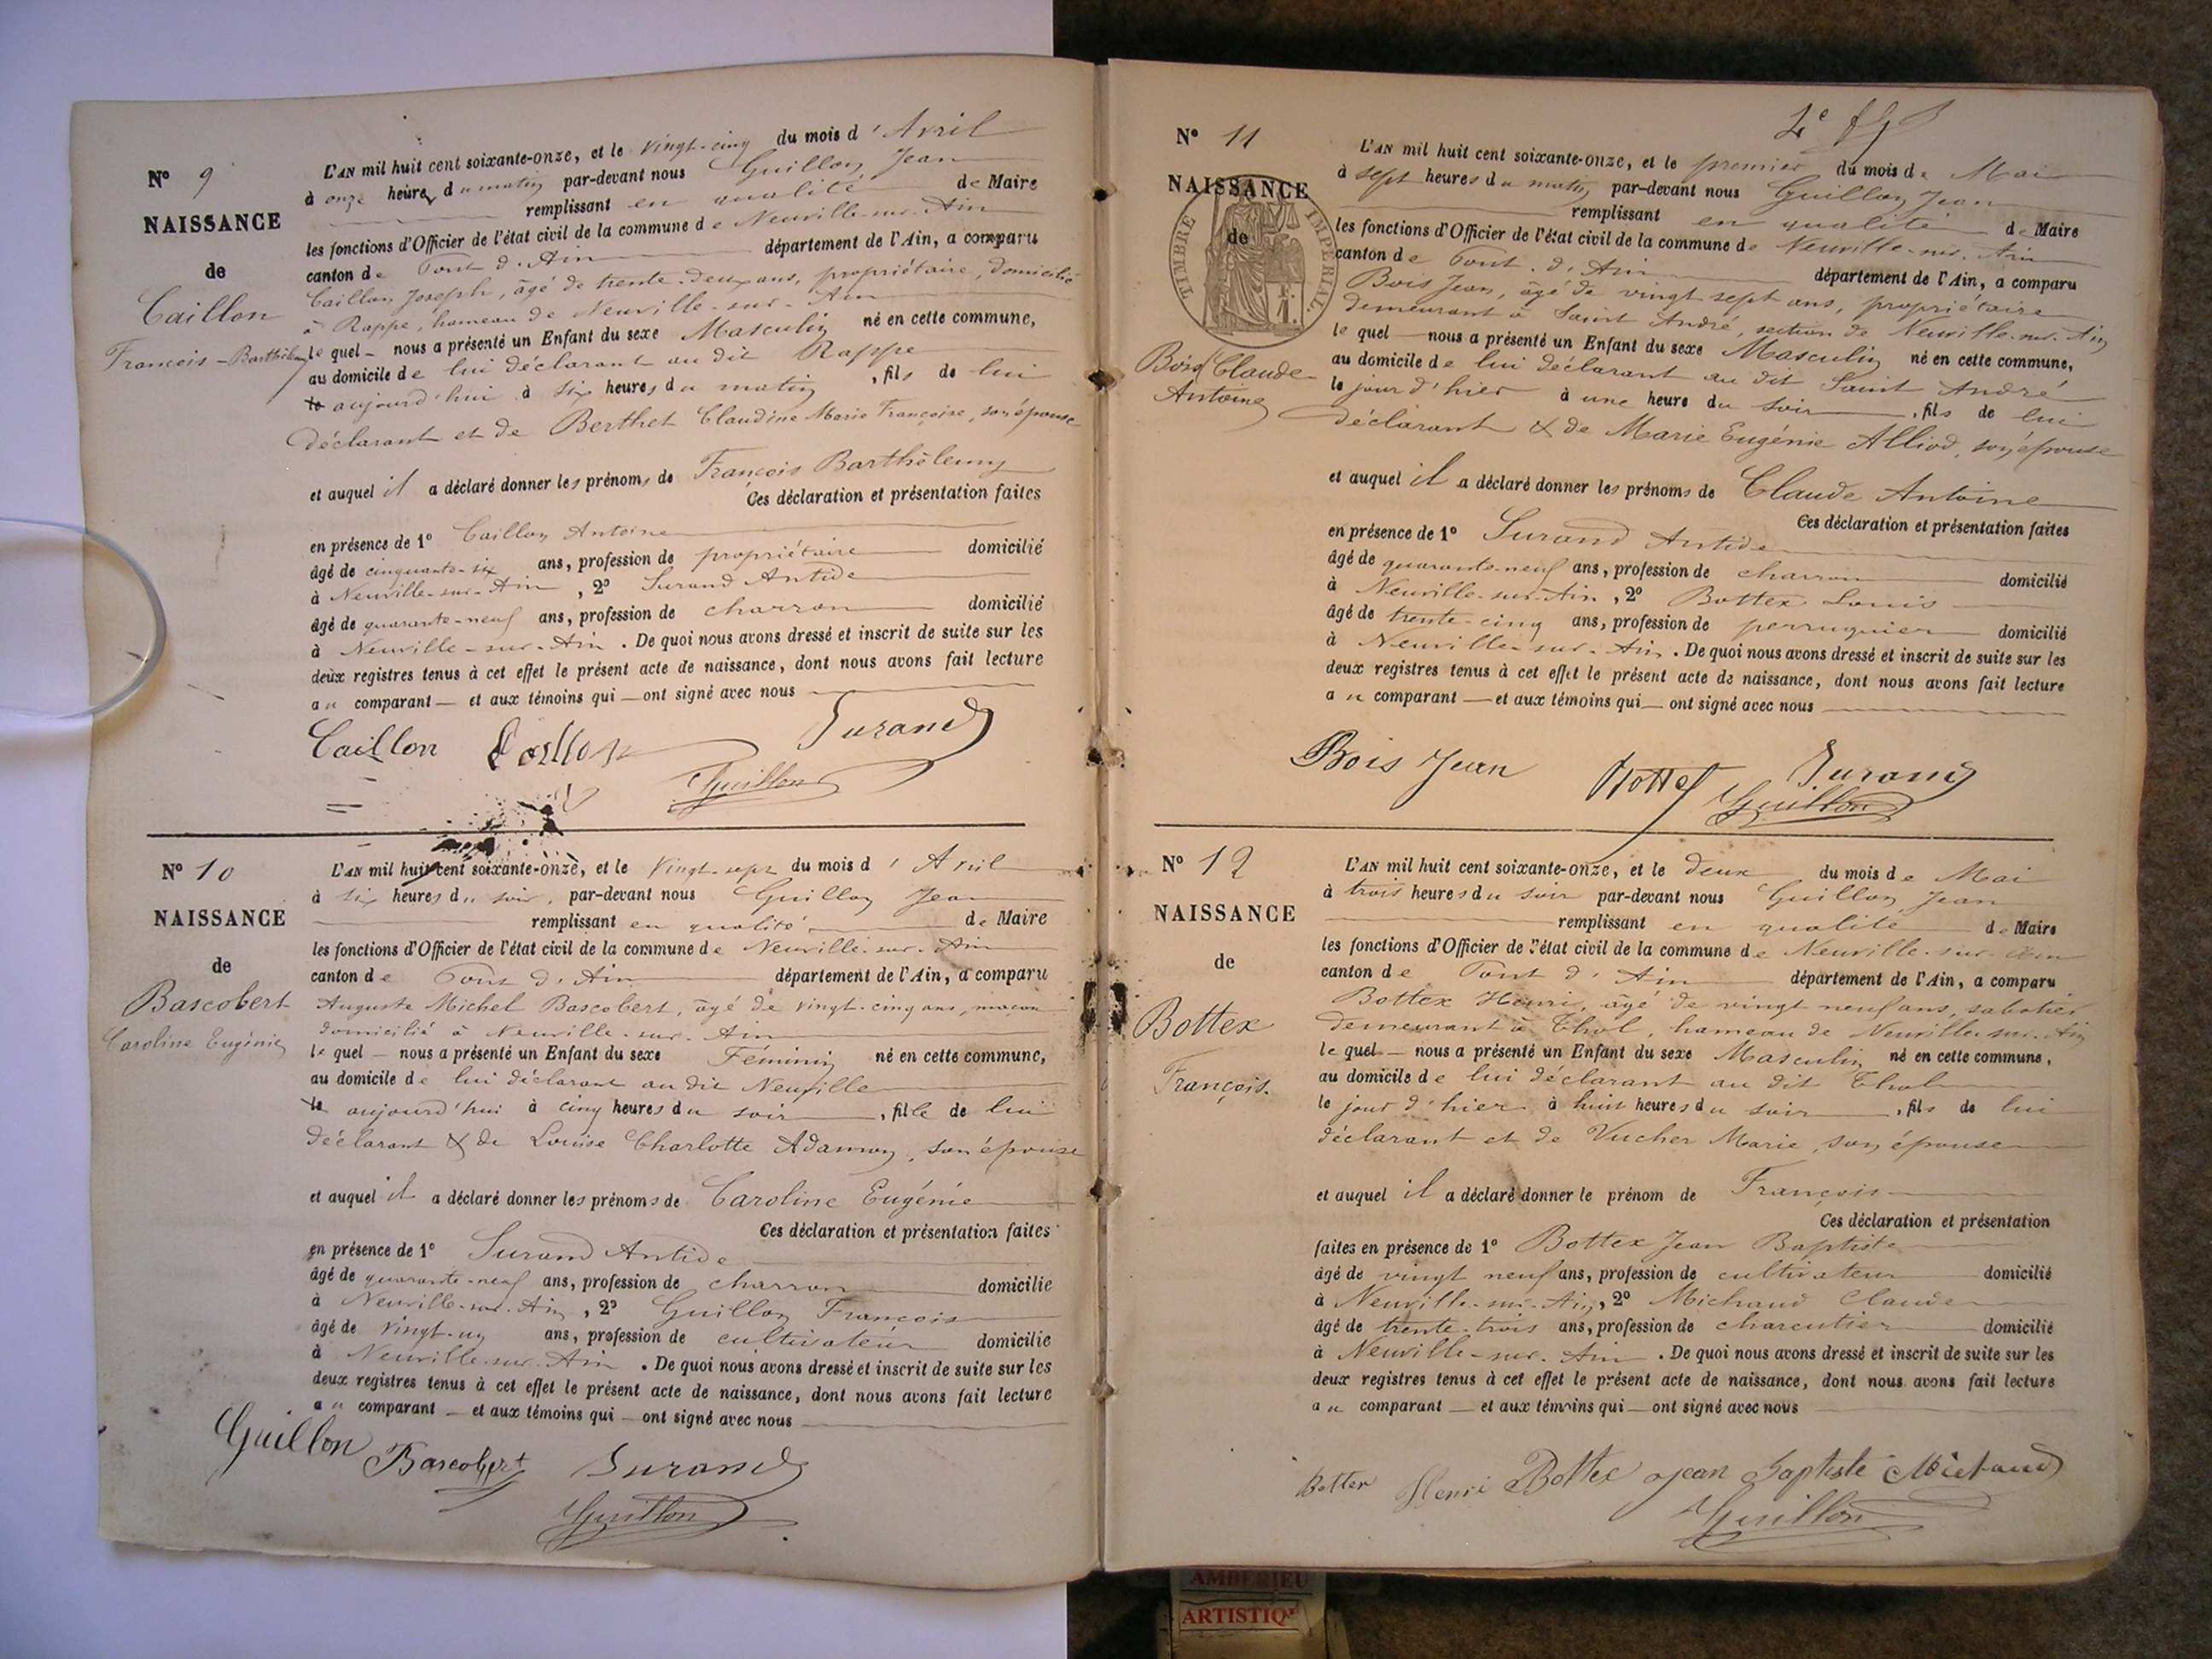 N° 9
NAISSANCE
de
Caillon
François-Barthélemy
L'AN mil huit cent soixante-onze, et le vingt-cinq du mois d'Avril
à onze heures du matin par-devant nous Guillon Jean
remplissant en qualité de Maire
les fonctions d'Officier de l'état civil de la commune de Neuville-sur-Ain
canton de Pont d'Ain département de l'Ain, a comparu
Caillon Joseph, âgé de trente-deux ans, propriétaire, domicilié
à Rappe, hameau de Neuville-sur-Ain
lequel nous a présenté un Enfant du sexe Masculin né en cette commune,
au domicile de lui déclarant au dit Rappe
le aujourd'hui à six heures du matin, fils de lui
déclarant et de Berthet Claudine Marie Françoise, son épouse
et auquel il a déclaré donner les prénoms de François Barthélemy
Ces déclaration et présentation faites
en présence de 1° Caillon Antoine
âgé de cinquante-six ans, profession de propriétaire domicilié
à Neuville-sur-Ain, 2° Surand Antide
âgé de quarante-neuf ans, profession de charron domicilié
à Neuville-sur-Ain. De quoi nous avons dressé et inscrit de suite sur les
deux registres tenus à cet effet le présent acte de naissance, dont nous avons fait lecture
au comparant et aux témoins qui ont signé avec nous
Caillon Caillon Surand
Guillon
N° 10
NAISSANCE
de
Bascobert
Caroline Eugénie
L'AN mil huit cent soixante-onze, et le vingt-sept du mois d'Avril
à six heures du soir, par-devant nous Guillon Jean
remplissant en qualité de Maire
les fonctions d'Officier de l'état civil de la commune de Neuville-sur-Ain
canton de Pont d'Ain département de l'Ain, a comparu
Auguste Michel Bascobert, âgé de vingt-cinq ans, maçon
domicilié à Neuville-sur-Ain
lequel nous a présenté un Enfant du sexe Féminin né en cette commune,
au domicile de lui déclarant au dit Neuville
le aujourd'hui à cinq heures du soir, fille de lui
déclarant & de Louise Charlotte , son épouse
et auquel il a déclaré donner les prénoms de Caroline Eugénie
Ces déclaration et présentation faites
en présence de 1° Surand Antide
âgé de quarante-neuf ans, profession de charron domicilié
à Neuville-sur-Ain, 2° Guillon François
âgé de vingt-un ans, profession de cultivateur domicilié
à Neuville-sur-Ain. De quoi nous avons dressé et inscrit de suite sur les
deux registres tenus à cet effet le présent acte de naissance, dont nous avons fait lecture
au comparant et aux témoins qui ont signé avec nous
Guillon Bascobert Surand
Guillon
N° 11
NAISSANCE
de
TIMBRE IMPÉRIAL.
Bois Claude
Antoine
L'AN mil huit cent soixante-onze, et le premier du mois de Mai
à sept heures du matin par-devant nous Guillon Jean
remplissant en qualité de Maire
les fonctions d'Officier de l'état civil de la commune de Neuville-sur-Ain
canton de Pont-d'Ain département de l'Ain, a comparu
Bois Jean, âgé de vingt sept ans, propriétaire
demeurant à Saint André, section de Neuville-sur-Ain
lequel nous a présenté un Enfant du sexe Masculin né en cette commune,
au domicile de lui déclarant au dit Saint André
le jour d'hier à une heure du soir, fils de lui
déclarant & de Marie Eugénie Alliod, son épouse
et auquel il a déclaré donner les prénoms de Claude Antoine
Ces déclaration et présentation faites
en présence de 1° Surand Antide
âgé de quarante-neuf ans, profession de charron domicilié
à Neuville-sur-Ain, 2° Bottex Louis
âgé de trente-cinq ans, profession de perruquier domicilié
à Neuville-sur-Ain. De quoi nous avons dressé et inscrit de suite sur les
deux registres tenus à cet effet le présent acte de naissance, dont nous avons fait lecture
au comparant et aux témoins qui ont signé avec nous
Bois Jean Bottex Surand
Guillon
N° 12
NAISSANCE
de
Bottex
François.
L'AN mil huit cent soixante-onze, et le deux du mois de Mai
à trois heures du soir par-devant nous Guillon Jean
remplissant en qualité de Maire
les fonctions d'Officier de l'état civil de la commune de Neuville-sur-Ain
canton de Pont d'Ain département de l'Ain, a comparu
Bottex Henri, âgé de vingt neuf ans, sabotier
demeurant à Thol, hameau de Neuville-sur-Ain
lequel nous a présenté un Enfant du sexe Masculin né en cette commune,
au domicile de lui déclarant au dit Thol
le jour d'hier à huit heures du soir, fils de lui
déclarant et de Vucher Marie, son épouse
et auquel il a déclaré donner le prénom de François
Ces déclaration et présentation
faites en présence de 1° Bottex Jean Baptiste
âgé de vingt neuf ans, profession de cultivateur domicilié
à Neuville-sur-Ain, 2° Michaud Claude
âgé de trente-trois ans, profession de charcutier domicilié
à Neuville-sur-Ain. De quoi nous avons dressé et inscrit de suite sur les
deux registres tenus à cet effet le présent acte de naissance, dont nous avons fait lecture
au comparant et aux témoins qui ont signé avec nous
Bottex Henri Bottex jean Baptiste Michaud
Guillon
AMBERIEU
ARTISTIQ